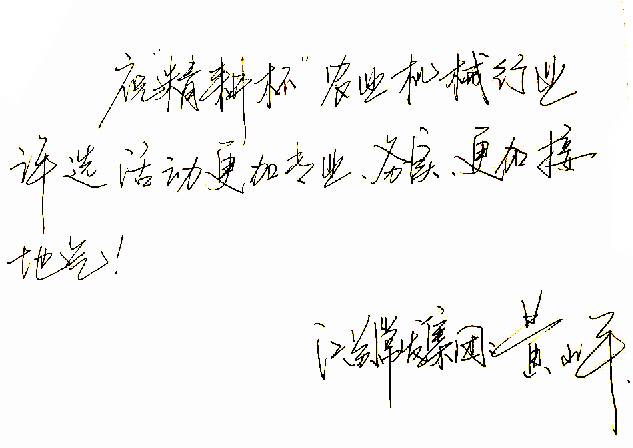 祝“精耕杯”农业机械行业
评选活动更加专业、务实、更加接
地气！
江苏常发集团：黄小平